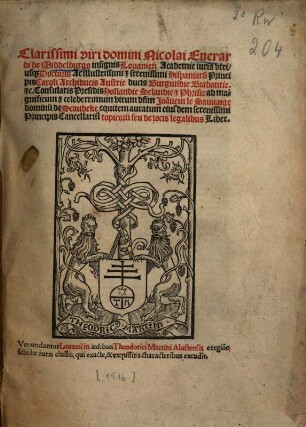 2° Rw
204
Clarissimi viri domini Nicolai Euerar
di de Middelburgo insignis Louanien̄ Academie iuris vtri
usq; Doctoris Ac illustrissimi ⁊ serenissimi Hispaniarū Princi
pis Caroli Archiducis Austrie ducis Burgundie Brabantie.
⁊c. Consularis Presidis Hollandie Selandie ⁊ Phrisie ad ma
gnificum ⁊ celeberrimum virum dn̄m Joānem le Sauuaige
dominū de Scaubeke equitem auratum eiusdem serenissimi
Principis Cancellariū topicorū seu de locis legalibus Liber.
THEODRICO MARTINI
Venundantur Louanii in ædibus Theodorici Martini Alustensis e regiōe
scholæ iuris ciuilis, qui exacte, & expolitis characteribus excudit.
[1516]